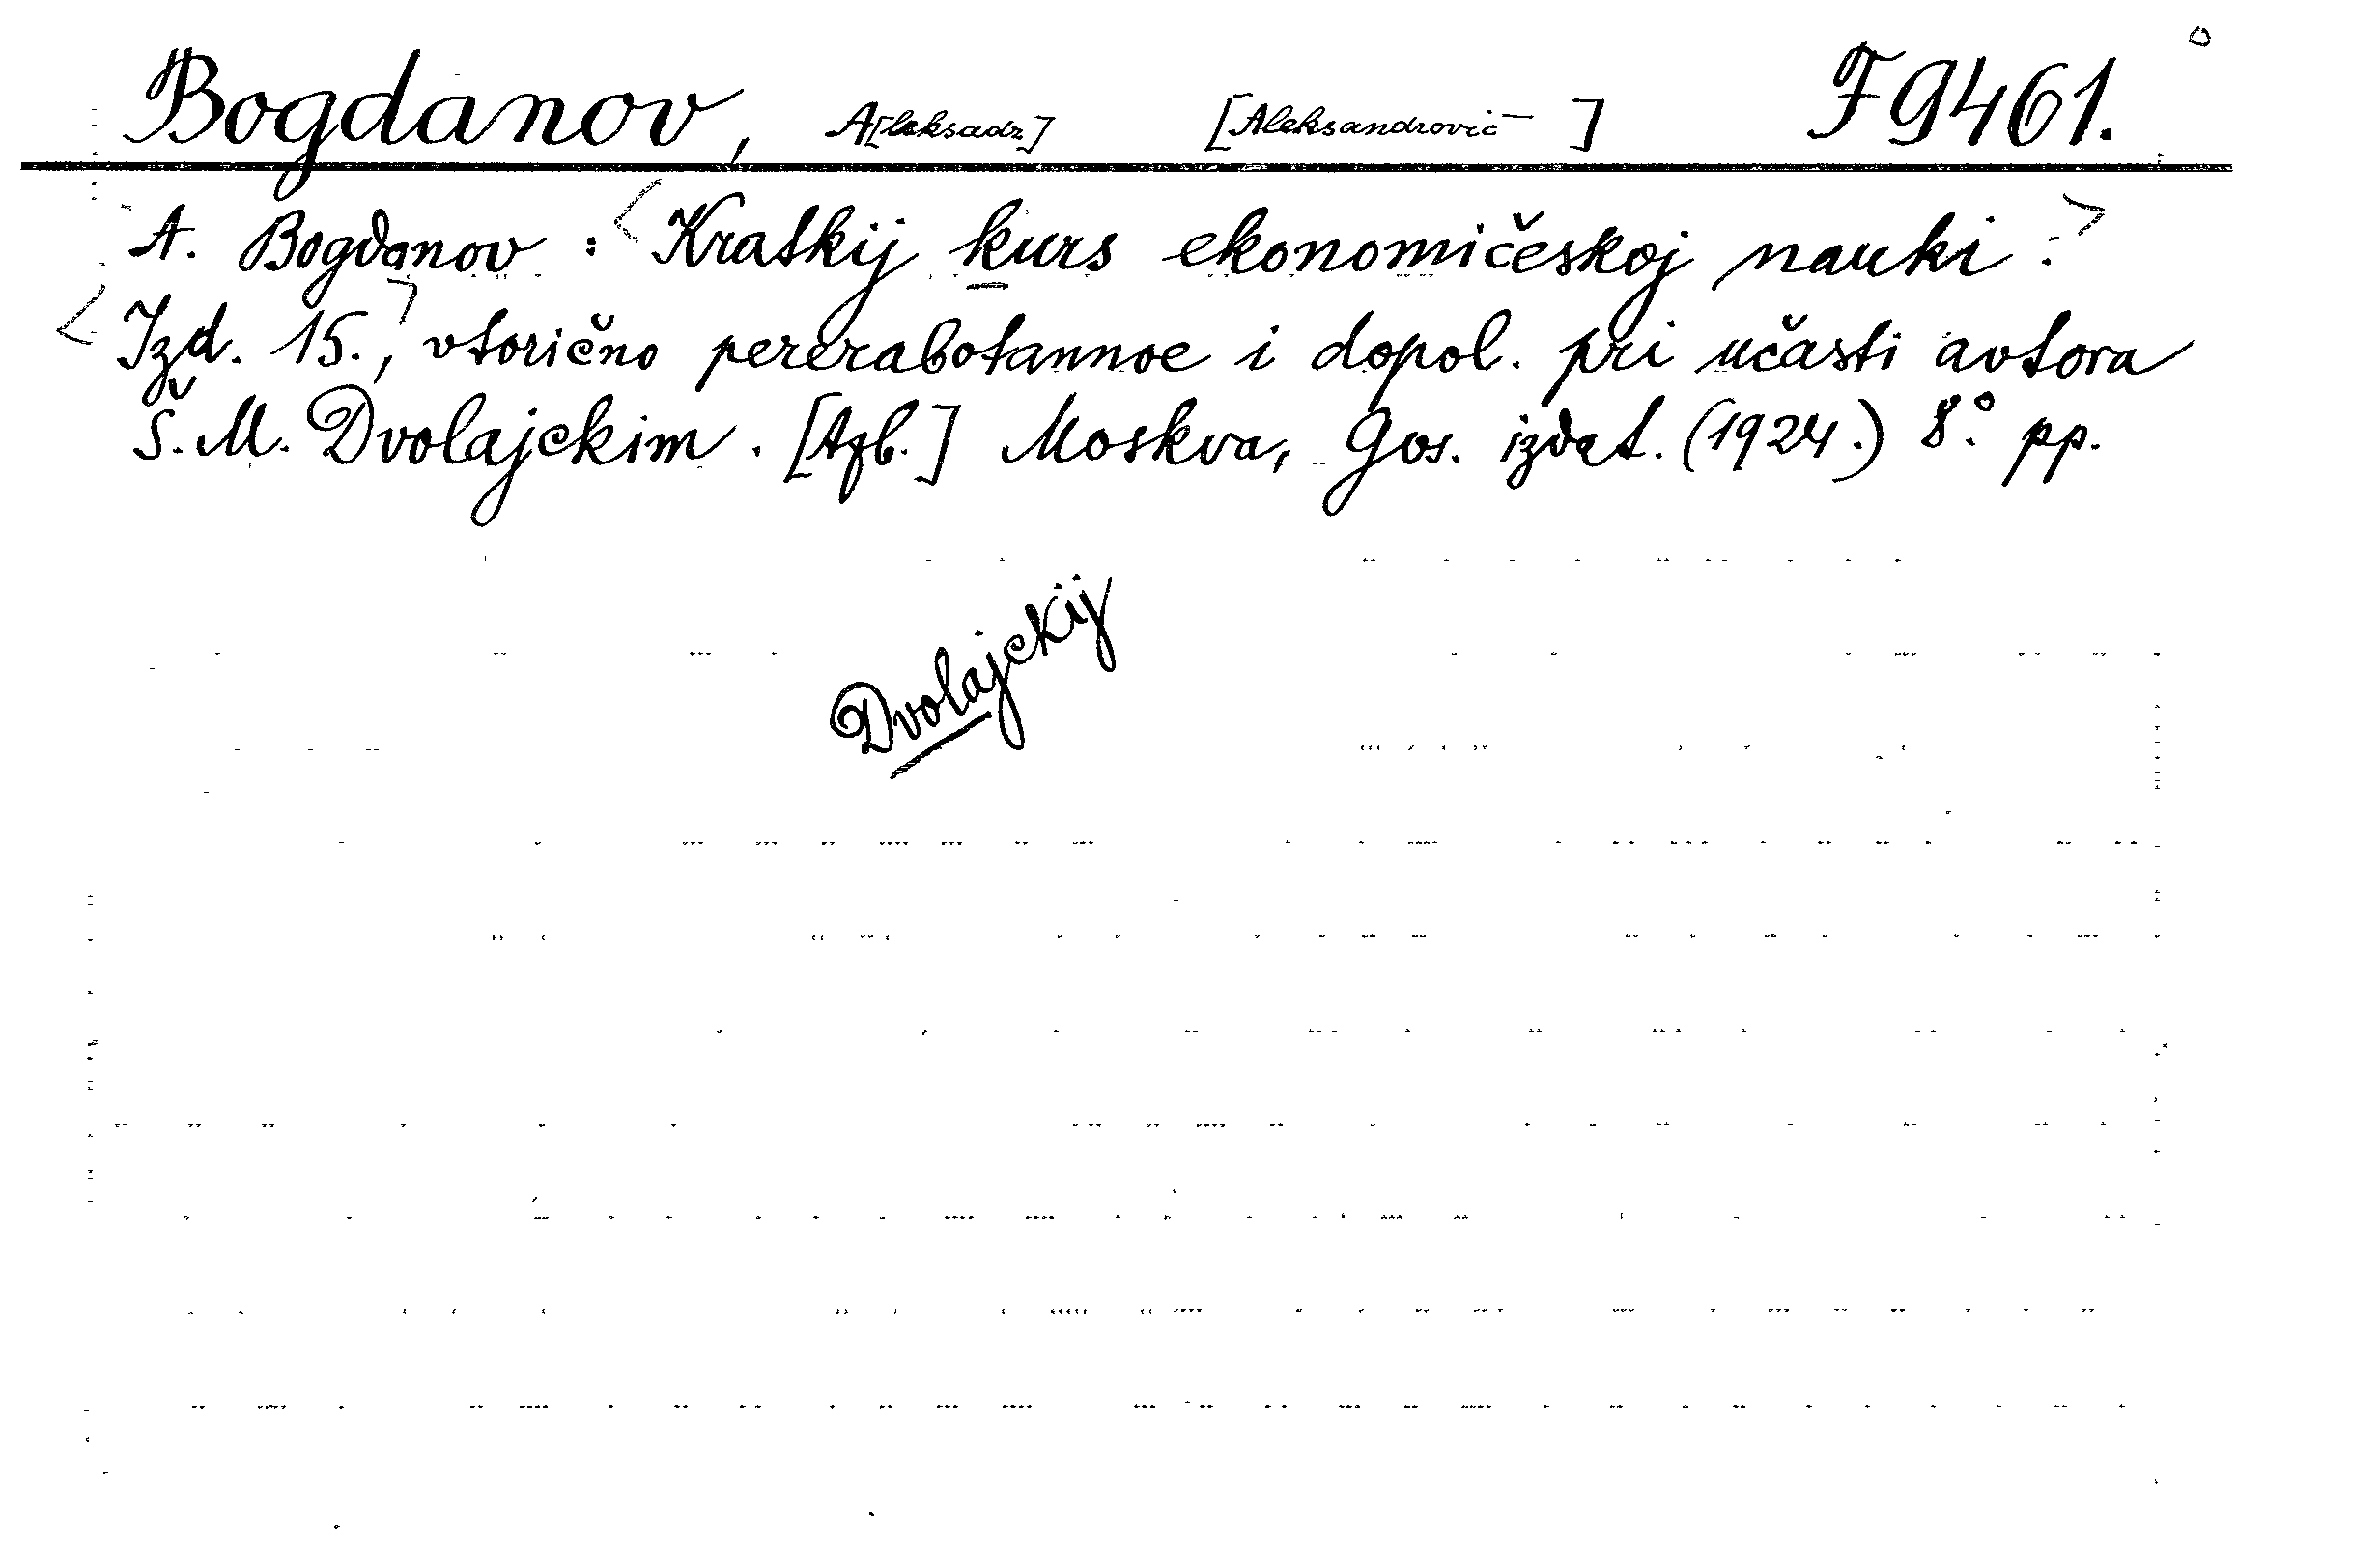 Bogdanov, A[leksadr] [Aleksandrovič] F 9461.
A. Bogdanov : <Kratkij kurs ekonomičeskoj nauki.>
<Izd. 15.,> vtorično pererabotannoe i dopol. pri učasti avtora
Š. M. Dvolajckim. [Azb.] Moskva, Gos. izdat. (1924.) 8° pp.
Dvolajckij